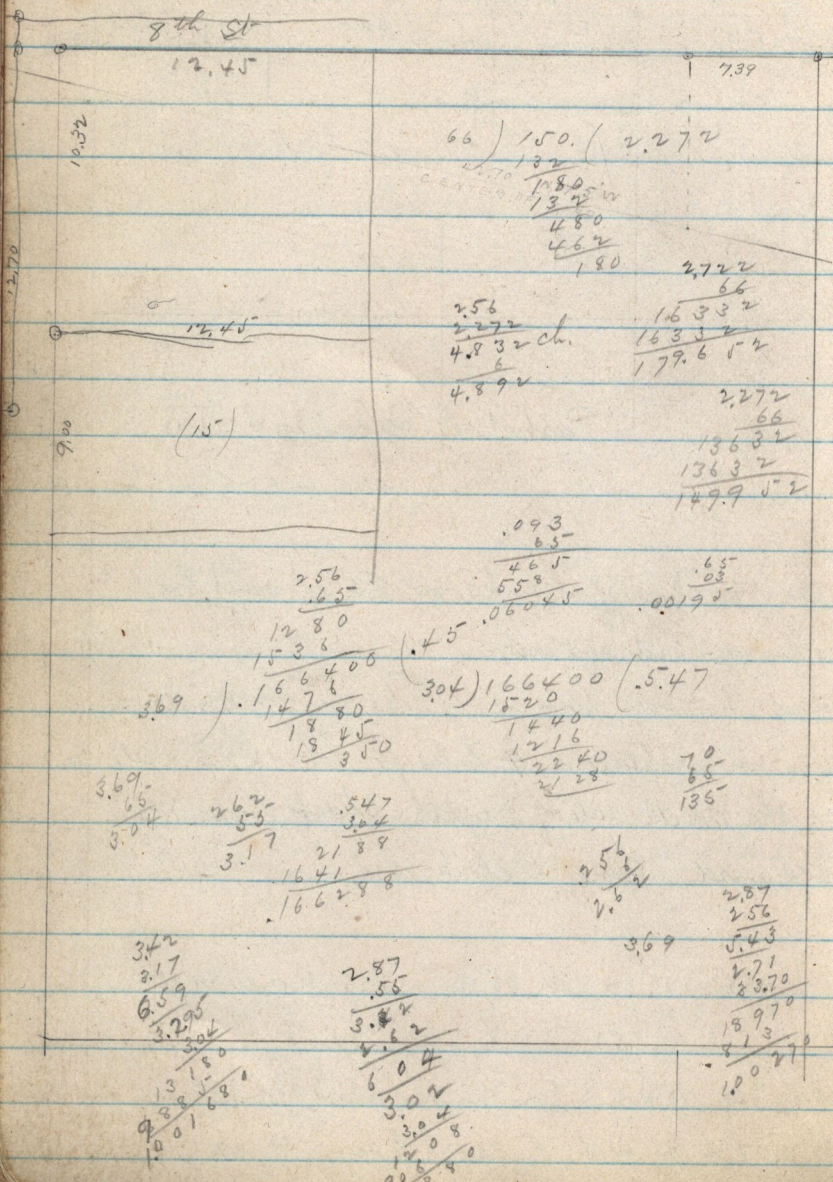 12.45
7.39
10.32
12.70
66 ) 150. ( 2.272
132
180
132
480
462
180
2,722
66
16332
16332
179.652
2.56
2.272
4.832 ch.
6
4.892
12.45
2.272
66
13632
13632
149.952
(15)
9.00
.093
65
465
558
.06045
.65
.03
.00195
2.56
.65
1280
1536
3.69 ) .166400 ( .45
1476
1880
1845
350
3.04 ) 166400 ( .5.47
1520
1440
1216
2240
2128
70
65
135
3.69
65
3.04
262
55
3.17
.547
3.04
2188
1641
.166288
256
6
2.62
3.69
2.87
256
5.43
2.71
3.70
18970
813
1.00270
3.42
3.17
6.59
3.295
3.04
13180
9885
1.001680
2.87
.55
3.42
2.62
604
3.02
3.04
1208